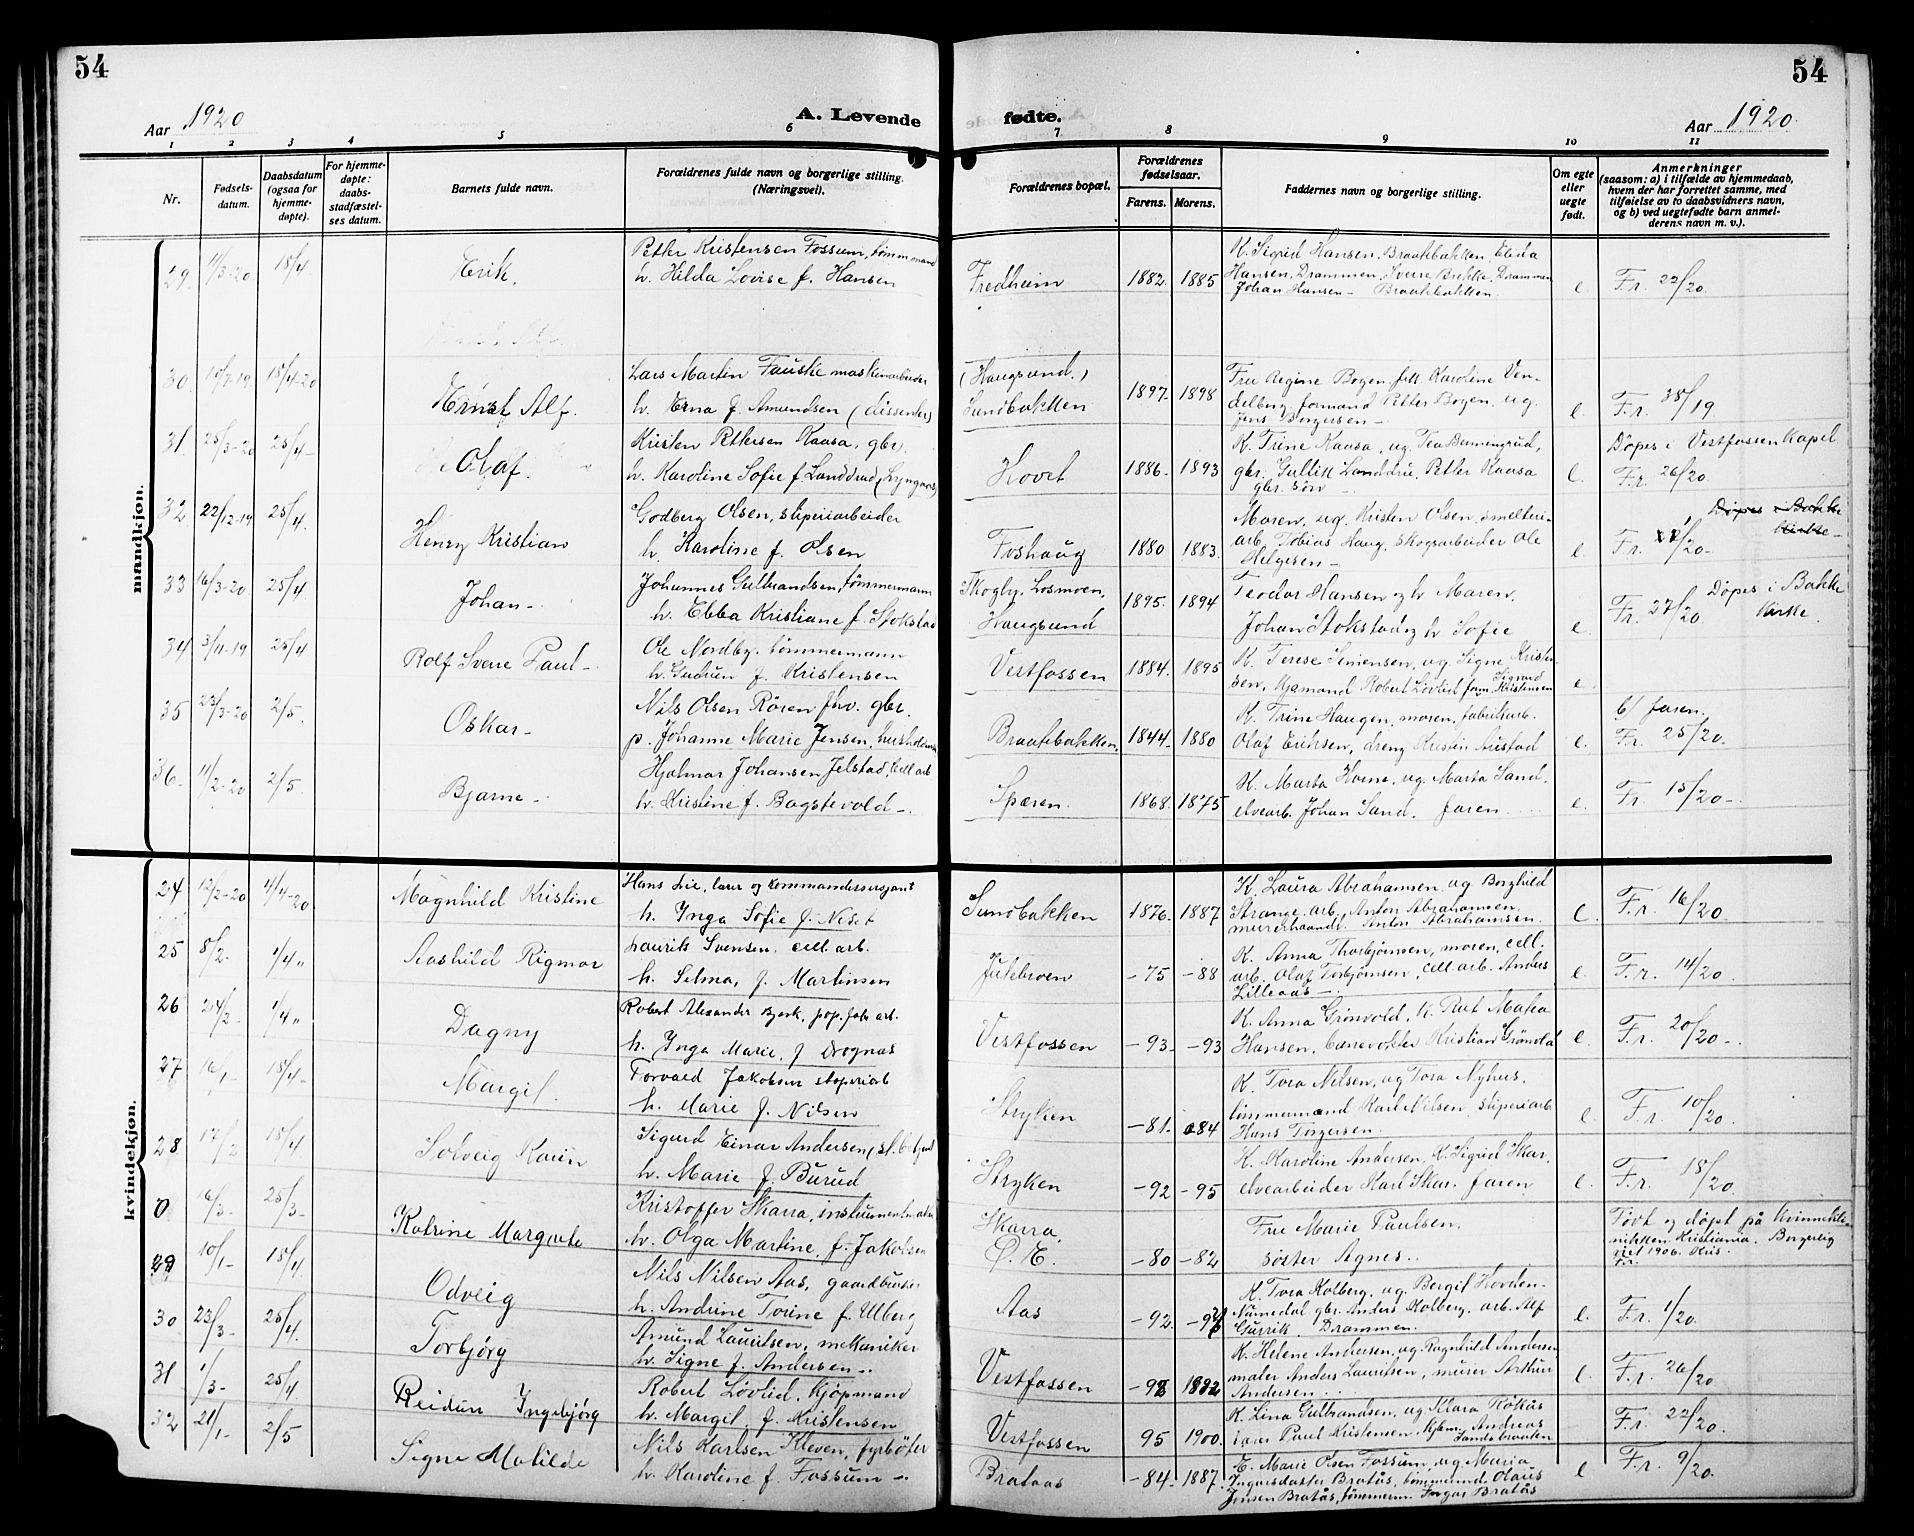 54
54
Aar 1920
A. Levende
fødte.
Aar 1920.
1 2 3 4 5 6 7 8 9 10 11
Nr.
Fødsels-
datum.
Daabsdatum
(ogsaa for
hjemme-
døpte).
For hjemme-
døpte:
daabs-
stadfæstel-
ses datum.
Barnets fulde navn.
Forældrenes fulde navn og borgerlige stilling.
(Næringsvei).
Forældrenes bopæl.
Forældrenes
fødselsaar.
Farens. Morens.
Faddernes navn og borgerlige stilling.
Om egte
eller
uegte
født.
Anmerkninger
(saasom: a) i tilfælde av hjemmedaab,
hvem der har forrettet samme, med
tilføielse av to daabsvidners navn,
og b) ved uegtefødte barn anmel-
derens navn m. v.).
mandkjøn.
29. 11/3-20 18/4 Erik. Fredheim 1882 1885 e Fr. 22/20.
Petter Kristensen Fossum, tømmermand
h. Hilda Lovise f. Hansen
K. Sigrid Hansen, Braatebakken,
Hansen, Drammen, Sverre Brekke, Drammen
Johan Hansen - Braatebakken.
30. 18/4-20 Ernst Alf. (Haugsund.) Sundbakken 1897. 1898 e. Fr. 38/19
Lars Martin Fauske maskinarbeider
h. Erna f. Amundsen (dissenter)
Fru Regine Bogen. frk. Karoline Ven-
delborg, formand Petter Bogen. ug.
Jens Borgersen -
31. 25/3-20 25/4- Olaf. Hovet 1886. 1893 e. Døpes i Vestfossen Kapel
Fr. 26/20.
Kristen Pettersen Kaasa, gbr.
h. Karoline Sofie f. Landdrud
K. Trine Kaasa, ug. Tea
gbr. Gullik Landdru, Petter Kaasa
gbr. søn -
32 22/12-19 25/4. Henry Kristian Foshaug 1880 1883. e. Fr. /20-
Døpes i Bakke
Kirke -
Godberg Olsen, sliperiarbeider
h. Karoline f. Olsen
Moren, ug. Kristen Olsen, smelteri-
arb. Tobias Haug, skogsarbeider Ole
Helgesen -
33 16/3-20 25/4 Johan - Skogly, Losmoen, Haugsund 1895. 1894 e. Fr. 27/20.
Døpes i Bakke
Kirke.
Johannes Gulbrandsen, tømmermann
h. Ebba Kristiane f. Stokstad
Teodor Hansen og h. Maren,
Johan Stokstad og h. Sofie
34 3/11-19 25/4 Rolf Sverre Paul - Vestfossen 1884. 1895 e.
Ole Nordby. tømmermann
h. Gudrun f. Kristensen
K. Terese Simensen, ug. Signe Kristen-
sen, kjømand Robert Løvlid, form. Sigurd Kristensen
35 23/3-20 2/5. Oskar - Braatebakken, 1844- 1880 e. b/ faren.
Fr. 25/20.
Nils Olsen Røren fhv. gbr.
p. Johanne Marie Jensen, husholderske
K. Trine Haugen, moren, fabrikarb.
Olaf Eriksen, dreng Kristin Austad
36. 11/2-20 2/5. Bjarne - Spæren. 1868. 1875 e. Fr. 15/20-
Hjalmar Johansen Jelstad, Cell. arb
h. Kristine f. Bagstevold -
K. Marta Horne, ug. Marta Sand.
elvearb. Johan Sand. faren
kvindekjøn.
24 12/2-20 4/4-20 Magnhild Kristine Sundbakken 1876. 1887 e. Fr. 16/20.
Hans Lie, lærer og kommandersersjant
h. Inga Sofie f. Niset
K. Laura Abrahamsen, ug Borghild
Strange, arb. Anton Abrahamsen,
murerhaandl. Anton Abrahamsen.
25 8/2. 1/4 " Aashild Rigmor Jutebroen -75 -88 e. Fr. 14/20.
Laurits Svensen. cell. arb.
h. Selma, f. Martinsen
K. Anna Thorbjørnsen, moren, cell.
arb. Olaf Torbjørnsen, cell. arb. Anders
Lilleaas -
26 24/2- 1/4 " Dagny Vestfossen -93. -93 e. Fr. 20/20-.
Robert Alexander Bjerk, pap. fabr. arb.
h. Inga Marie, f. Drognas
K. Anna Grønvold, K. Rut
Hansen, banevokter Kristian
27 16/1- 18/4- Margit. Stryken -81. -84 e. Fr. 10/20.
Torvald Jakobsen sliperiarb
h. Marie f. Nilsen
K. Tora Nilsen, ug Tora Nyhus.
timmermand Karl Nilsen, sliperiarb
Hans Torgersen.
28 17/2 18/4 Solveig Karin Stryken -92 -95 e. Fr. 18/20.
Sigurd Einar Andersen,
h. Marie f. Burud
K. Karoline Andersen, K. Sigrid Skar,
elvearbeider Karl Skar. faren
0 16/3- 25/3- Katrine Margrete Skarra, Ø. E. -80 -82
Født og døpt på Kvinnekli-
nikken. Kristiania. Borgerlig
viet 1906. Kris.
Fr.
Kristoffer Skarra, instrumentmaker
h. Olga Martine, f. Jakobsen
Fru Marie Paulsen.
søster Agnes.
29 10/1- 18/4 Odveig Aas -92. e. Fr. 1/20.
Nils Nilsen Aas, gaardbruker
h. Andrine Torine f. Ulberg
K. Tora Kolberg, ug. Bergit Hovden-
Numedal gbr. Anders Kolberg, arb. Alf
Gurrik. Drammen.
30 23/3- 25/4. Torbjørg Vestfossen e. Fr. 26/20
Amund Lauritsen, mekaniker
h. Signe f. Andersen -.
K. Helene Andersen, ug. Ragnhild Andersen
maler Anders Lauritsen, murer Arthur
Andersen
31 1/3- 25/4 Reidun Ingebjørg Vestfossen 95 1900. Fr. 22/20.
Robert Løvlid, kjøpmand
h. Margit, f. Kristensen
K. Lina Gulbrandsen, ug. Klara Røkås
lærer Paul Kristensen, kjøm. Andreas
Sandsbraaten
32 21/1- 2/5 Signe Matilde Brataas -84. 1887. e Fr. 9/20.
Nils Karlsen Kleven, fyrbøter
h. Karoline f. Fossum -.
E. Marie Olsen Fossum, ug Maria
Ingvarsdatter Bratås, tømmermd. Olaus
Jensen Bratås, tømmerm. Ingvar Bratås